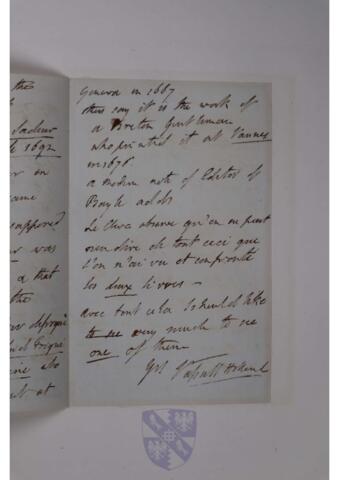 the
Sadeur
1692
er on
ame
supposed
er was
a that
the
also
at
Geneva in 1667
others say it is the work of
a Breton Gentleman
who printed it at Vannes
in 1676.
a modern note of Editor of
Bayle adds
Le Clerc observe qu'on ne peut
rien dire de tout ceci que
l'on n'ai vu et confronté
les deux livres —
avec tout cela I should like
to see very much to see
one of them